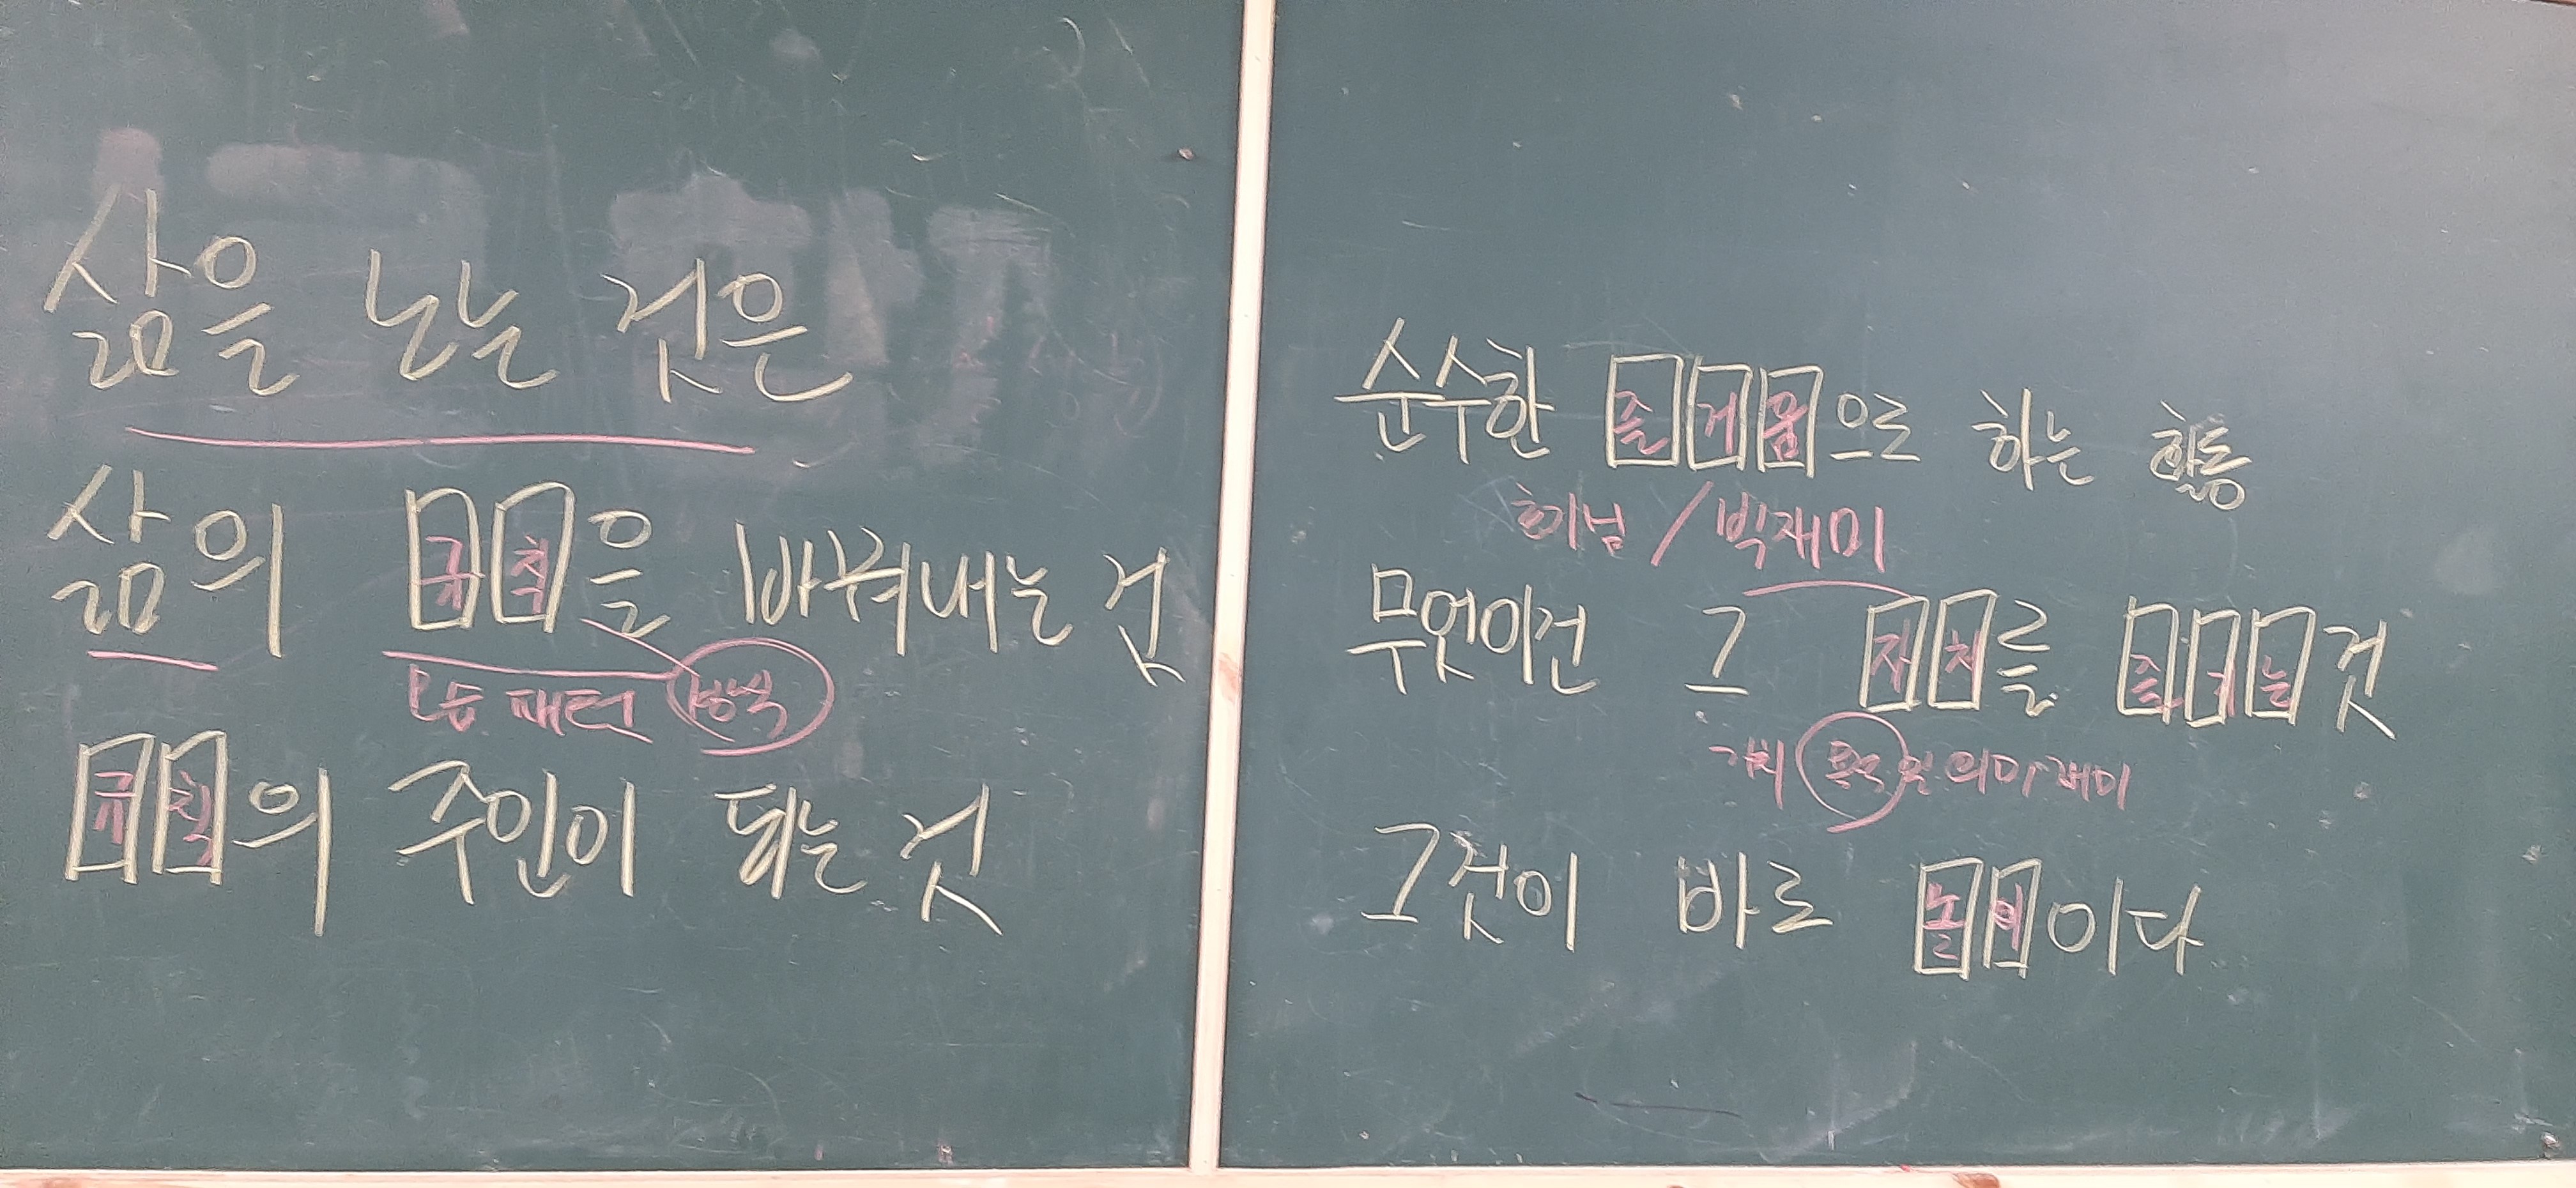 삶을 노는 것은
삶의 규칙을 바꿔내는 것
패턴
규칙의 주인이 되는 것
순수한 즐거움으로 하는 활동
/ 빅재미
무엇이건 그 자체를 즐기는 것
가치 의미 재미
그것이 바로 놀이이다